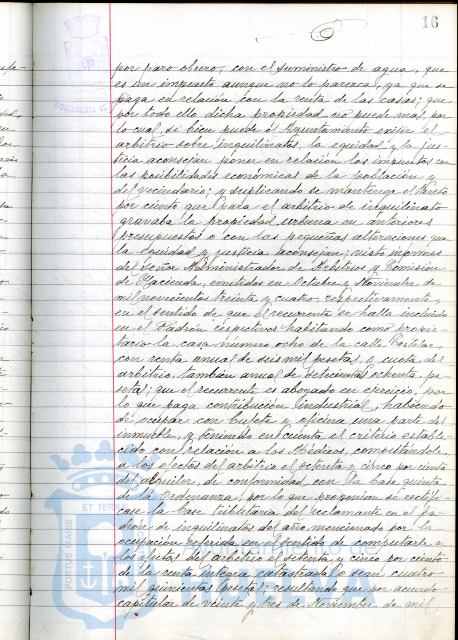 16
por paro obrero, con el suministro de agua, que
es un impuesto aunque no lo parezca, ya que se
paga en relación con la renta de las casas; que
por todo ello dicha propiedad no puede mas, por
lo cual, si bien puede el Ayuntamiento exigir el
arbitrio sobre inquilinatos, la equidad y la jus-
ticia aconsejan poner en relación los impuestos con
las posibilidades económicas de la población y
del vecindario; y suplicando se mantenga el tanto
por ciento que para el arbitrio de inquilinato
gravaba la propiedad urbana en anteriores
presupuestos o con las pequeñas alteraciones que
la equidad y justicia aconsejan; visto informes
del señor Administrador de Arbitrios y Comisión
de Hacienda, emitidos en Octubre y Noviembre de
mil novecientos treinta y cuatro, respectivamente,
en el sentido de que el recurrente se halla incluido
en el Padrón respectivo habitando como propie-
tario la casa número ocho de la calle
con renta anual de seis mil pesetas y cuota del
arbitrio, también anual de setecientas ochenta pe-
setas; que el recurrente es abogado en ejercicio, por
lo que paga contribución industrial, habiendo
de ocupar con bufete y oficina una parte del
inmueble, y teniendo en cuenta el criterio estable-
cido con relación a los Médicos, computándole
a los efectos del arbitrio el setenta y cinco por ciento
del alquiler, de conformidad con la base quinta
de la Ordenanza, por lo que proponian se rectifi-
case la base tributaria del reclamante en el Pa-
drón de inquilinatos del año mencionado por la
ocupación referida en el sentido de computarle a
los efectos del arbitrio el setenta y cinco por ciento
de la renta íntegra catastrada o sean cuatro
mil quinientas pesetas; resultando que por acuerdo
capitular de veinte y tres de Noviembre de mil
PORTUS ILLARIS
ET TER